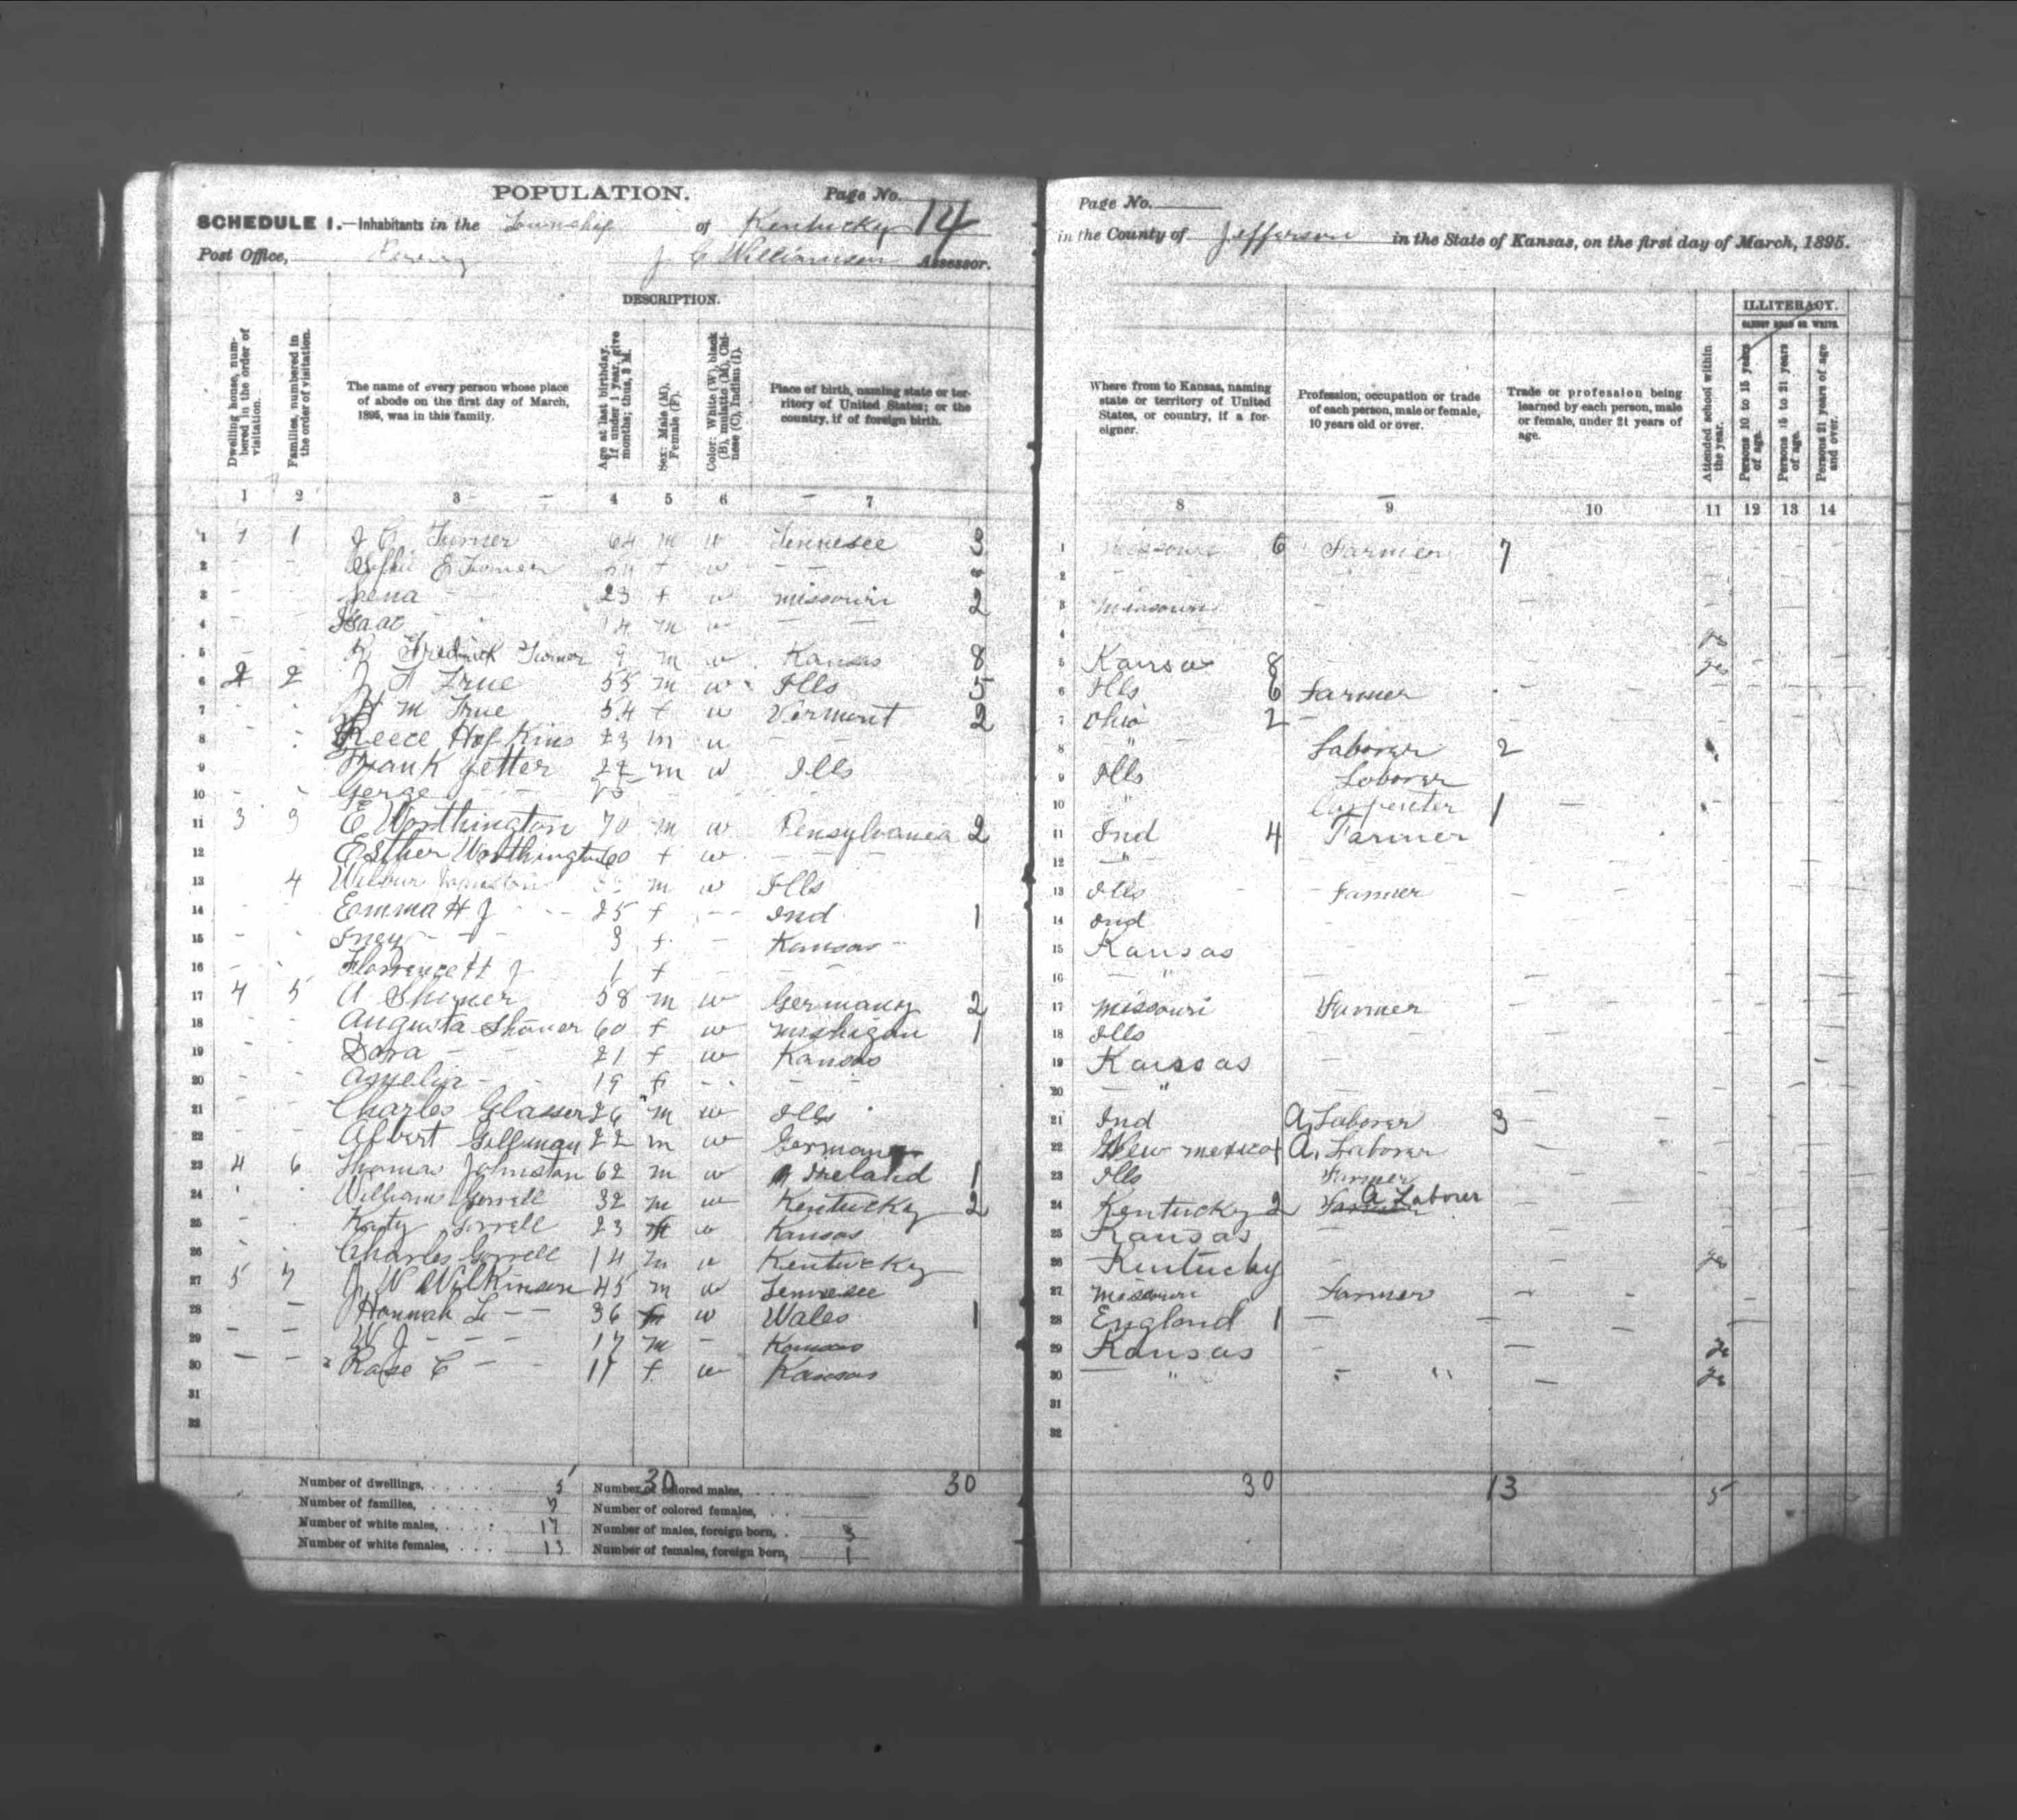 POPULATION. Page No. 14
SCHEDULE 1.—Inhabitants in the Township of Kentucky
Post Office, J C Williamson Assessor.
DESCRIPTION.
Dwelling house, numbered in the order of visitation.
Families, numbered in the order of visitation.
The name of every person whose place of abode on the first day of March, 1895, was in this family.
Age at last birthday. If under 1 year, give months; thus, 3 M.
Sex: Male (M). Female (F).
Color: White (W), black (B), mulatto (M), Chinese (C), Indian (I).
Place of birth, naming state or territory of United States; or the country, if of foreign birth.
1 2 3 4 5 6 7
1 1 1 Turner 64 m w Tennesee 3
2 f w - -
3 23 f w missouri 2
4 Isaac 14 m w - -
5 Fredrick Turner 9 m w Kansas 8
6 2 2 J True 55 m w Ills 5
7 m True 54 f w Vermont 2
8 Reece Hopkins 23 m w - -
9 Frank Jetter 22 m w Ills
10 Gerge - -
11 3 3 E Worthington 70 m w Pensylvania 2
12 Esther Worthington 60 f w - -
13 4 Wilbur Johnston m w Ills
14 Emma H J - - 25 f - - Ind 1
15 Iney - - 3 f - Kansas
16 Florrence H J 1 f - -
17 4 5 A Shoner 58 m w Germany 2
18 Augusta Shoner 60 f w Mishigan 1
19 Dora - 21 f w Kansas
20 Amelia - 19 f - - - -
21 Charles Glasser 26 m w Ills
22 Albert 22 m w Germany
23 4 6 Thomas Johnston 62 m w Ireland 1
24 William Gorrell 32 m w Kentucky 2
25 Katy Gorrell 23 f w Kansas
26 Charles Gorrell 14 m w Kentucky
27 5 7 J W Wilkinson 45 m w Tennesee
28 Hannah L - - 36 f w Wales 1
29 W J - - - 17 m - Kansas
30 Rose C - - 11 f w Kansas
31
32
30 30
Number of dwellings, 5 Number of colored males,
Number of families, 7 Number of colored females,
Number of white males, 17 Number of males, foreign born, 3
Number of white females, 13 Number of females, foreign born, 1
Page No.
in the County of Jefferson in the State of Kansas, on the first day of March, 1895.
ILLITERACY.
CANNOT READ OR WRITE.
Where from to Kansas, naming state or territory of United States, or country, if a foreigner.
Profession, occupation or trade of each person, male or female, 10 years old or over.
Trade or profession being learned by each person, male or female, under 21 years of age.
Attended school within the year.
Persons 10 to 15 years of age.
Persons 15 to 21 years of age.
Persons 21 years of age and over.
8 9 10 11 12 13 14
1 Missouri 6 Farmer 7
2 -
3 Missouri
4 ys
5 Kansas 8 ys
6 Ills 6 Farmer
7 Ohio 2
8 " Laborer 2
9 Ills Laborer
10 " Carpenter 1
11 Ind 4 Farmer
12 "
13 Ills Farmer
14 Ind
15 Kansas
16 "
17 Missouri Farmer
18 Ills
19 Kansas
20 "
21 Ind A, Laborer 3
22 New mexico 1 A, Laborer
23 Ills Farmer
24 Kentucky 2 Farmer A Laborer
25 Kansas
26 Kentucky ys
27 Missouri Farmer
28 England 1
29 Kansas ys
30 " " ys
31
32
30 13 5